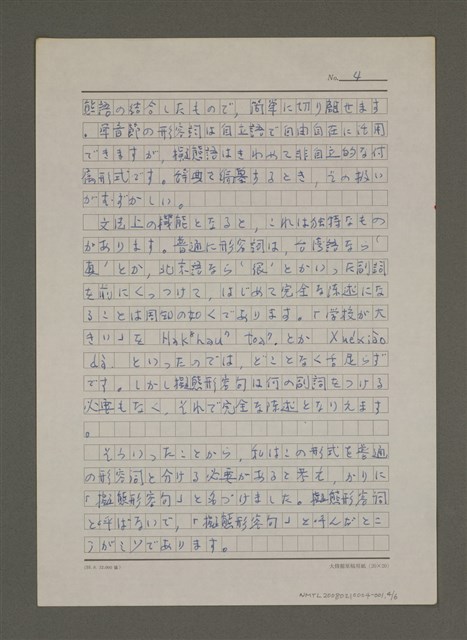 No. 4
態語の結合したもので，簡単に切り離せます
。単音節の形容詞は自立語で自由自在に活用
できますが，擬態語はきわめて非自立的な付
属形式です。辞典で編纂するとき，その扱い
がむずかしい。
文法上の機能となると，これは独特なもの
があります。普通に形容詞は，台湾語なら‘
真’とか，北京語なら‘很’とかいった副詞
を前にくっつけて，はじめて完全な陳述にな
ることは周知の如くであります。「学校が大
きい」を Hak hau toa. とか Xuéxiào
dà. といったのでは，どことなく舌足らず
です。しかし擬態形容句は何の副詞をつける
必要もなく，それで完全な陳述となりえます
。
そういったことから，私はこの形式を普通
の形容詞と分ける必要があると考え，かりに
「擬態形容句」と名づけました。擬態形容詞
と呼ばないで，「擬態形容句」と呼んだとこ
ろがミソであります。